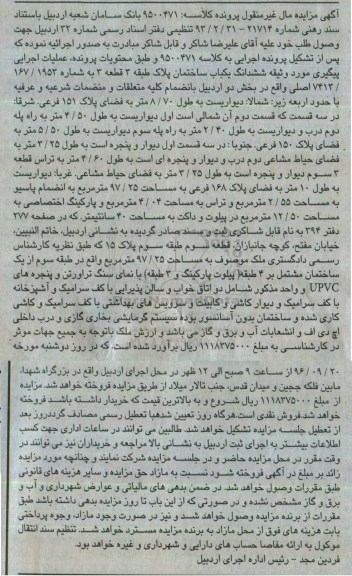 آگهی مزایده مال غیرمنقول پرونده کلاسه: ۹۵۰۰۴۷۱ بانک سامان شعبه اردبیل باستناد
سند رهنی شماره ۲۱۷۱۴ - ۹۳/۲/۳۱ تنظیمی دفتر اسناد رسمی شماره ۳۲ اردبیل جهت
وصول طلب خود علیه آقای علیرضا شاکر و قابل شاکر مبادرت به صدور اجرائیه نموده که
پس از تشکیل پرونده اجرایی به کلاسه ۹۵۰۰۴۷۱ و طبق محتویات پرونده، عملیات اجرایی
پیگیری مورد وثیقه ششدانگ یکباب ساختمان پلاک طبقه ۳ قطعه ۳ به شماره ۱۹۵۳/۱۶۷
/۷۴۱۳ اصلی واقع در بخش دو اردبیل بانضمام کلیه متعلقات و منضمات شرعیه و عرفیه
با حدود اربعه زیر: شمالا: دیواریست به طول ۸/۷۰ متر به فضای پلاک ۱۵۱ فرعی. شرقا:
در سه قسمت که قسمت دوم آن شمالی است اول دیواریست به طول ۴/۵۰ متر به راه پله
دوم درب و دیواریست به طول ۲/۴۰ متر به راه پله سوم دیواریست به طول ۵/۵۰ متر به
فضای پلاک ۱۵۰ فرعی. جنوبا: در سه قسمت اول دیوار و پنجره است به طول ۳/۲۵ متر به
فضای حیاط مشاعی دوم درب و دیوار و پنجره ای است به طول ۴/۶۰ متر به تراس قطعه
۳ سوم دیوار و پنجره است به طول ۳/۲۵ متر به فضای حیاط مشاعی. غربا: دیواریست
به طول ۱۰ متر به فضای پلاک ۱۶۸ فرعی به مساحت ۹۷/۲۵ مترمربع به انضمام پاسیو
به مساحت ۲/۵۵ مترمربع و تراس به مساحت ۴/۰۴ مترمربع و پارکینگ اختصاصی به
مساحت ۱۲/۵۰ مترمربع در پیلوت و داکت به مساحت ۴۰ سانتیمتر. که در صفحه ۲۷۷
دفتر ۳۹۴ به نام قابل شاکری ثبت و سند صادر گردیده به نشانی اردبیل، خاتم النبیین،
خیابان مفتح، کوچه جانبازان، قطعه سوم طبقه سوم پلاک ۱۵ که طبق نظریه کارشناس
رسمی دادگستری ملک موصوف به مساحت ۹۷/۲۵ مترمربع واقع در طبقه سوم از یک
ساختمان مشتمل بر ۴ طبقه( پیلوت پارکینگ و ۳ طبقه) با نمای سنگ تراورتن و پنجره های
UPVC و واحد مذکور شامل دو اتاق خواب و سالن پذیرایی با کف سرامیک و آشپزخانه
با کف سرامیک و دیوار کاشی و کابینت و سرویس های بهداشتی با کف سرامیک و کاشی
کاری شده و ساختمان بدون آسانسور بوده سیستم گرمایشی بخاری گازی و درب داخلی
اچ دی اف و انشعابات آب و برق و گاز می باشد و ارزش ملک باتوجه به جمیع جهات موثر
در کارشناسی به مبلغ ۱۱۱۸۳۷۵۰۰۰ ریال برآورد شده است. که در روز دوشنبه مورخه
۹۶/۰۹/۲۰ از ساعت ۹ صبح الی ۱۲ ظهر در محل اجرای اردبیل واقع در بزرگراه شهدا،
مابین فلکه ججین و میدان قدس، جنب تالار میلاد از طریق مزایده فروخته خواهد شد. مزایده
از مبلغ ۱۱۱۸۳۷۵۰۰۰ ریال شروع و به بالاترین قیمت که خریدار داشته باشد فروخته
خواهد شد. فروش نقدی است. هرگاه روز تعیین شده با تعطیل رسمی مصادف گردد روز بعد
از تعطیل جلسه مزایده تشکیل خواهد شد. طالبین می توانند در ساعات اداری جهت کسب
اطلاعات بیشتر به اجرای ثبت اردبیل به نشانی بالا مراجعه و خریداران نیز می توانند در
وقت مقرر در محل مزایده حاضر و در جلسه مزایده شرکت نمایند و چنانچه مورد مزایده
زائد بر مبلغ در آگهی فروخته شود نسبت به مازاد حق مزایده و سایر هزینه های قانونی
طبق مقررات وصول خواهد شد. در ضمن بدهی های مالیاتی و عوارض شهرداری و آب و
برق و گاز مشخص نشده و در صورتی که از این باب تا روز مزایده بدهی داشته باشد طبق
مقررات از برنده مزایده وصول خواهد شد و نیز در صورت وجود مازاد، وجوه پرداختی
بابت هزینه های فوق از محل مازاد به برنده مزایده مسترد خواهد شد. تنظیم سند انتقال
موکول به ارائه مفاصا حساب های دارایی و شهرداری و غیره خواهد بود.
فردین مجد - رئیس اداره اجرای اردبیل